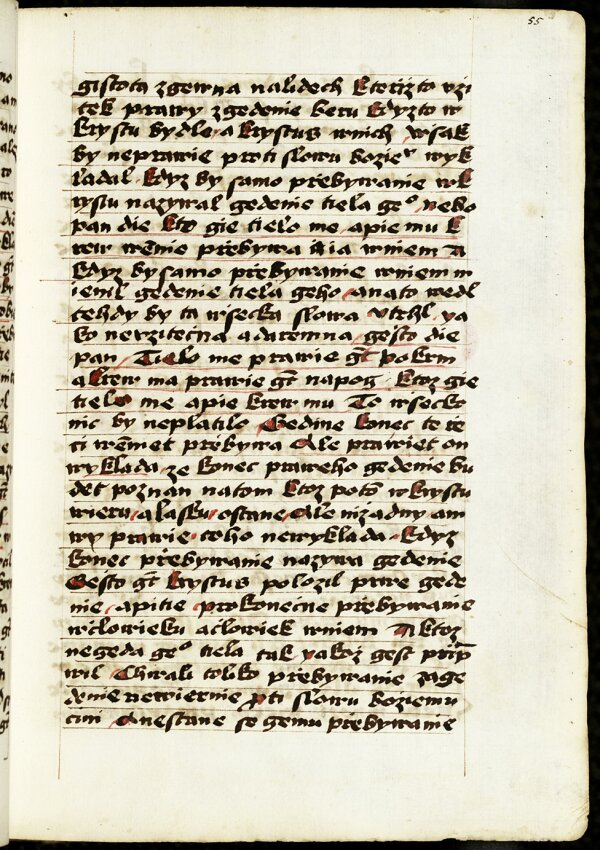 55
gistota zgewna nalidech kteřižto vzi
tek prawy zgedenie beru kdyzto w
krystu bydle a krystus wnich wsak
by neprawie proti slowu bozie° wyk
ladal kdyz by samo přebywanie wk
rystu nazywal gedenie tiela ge° nebo
pan die kto gie tielo me apie mu k
rew we mnie přebywa
kdyz by samo přebywanie wniem m
ienil gedenie tiela geho anato wedl
tehdy by ta wsecka slowa
ko nevzitečna adaremna gešto die
pan Tielo me prawie gt pokrm
akrew ma prawie gt napog ktoz gie
tielo me apie krew mu To wsecko
nic by neplatilo Gedine konec te
přebywa Ale prawiet on
wyklada ze konec praweho gedenie bu
det poznan natom ktoz potō wkrystu
wieru alasku ostane Ale nizadny an
wy prawie toho newyklada kdyz
konec přebywanie nazywa gedenie
Gešto gt krystus polozil prwe gede
nie apitie prokonečne přebywanie
wčlowieku ačlowiek wniem A ktoz
negeda ge° tiela tak yakoz gest
wil Chwali toliko přebywanie zage
denie newiernie pti slowu boziemu
čini Anestane se gemu přebywanie